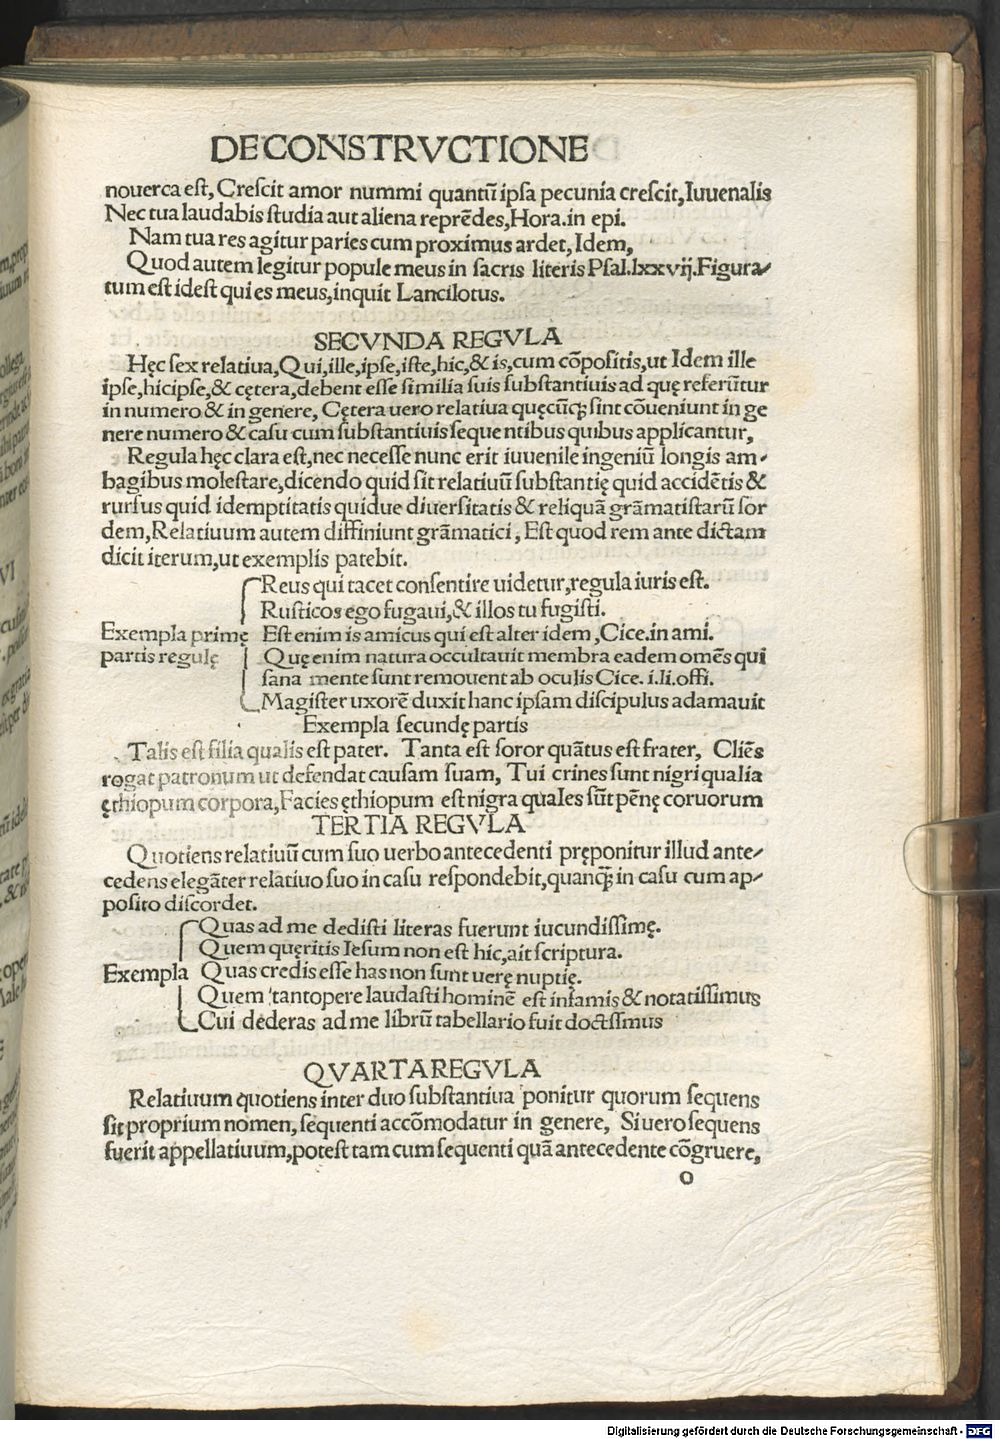 DE CONSTRVCTIONE
nouerca est, Crescit amor nummi quantū ipsa pecunia crescit, Iuuenalis
Nec tua laudabis studia aut aliena reprēdes, Hora. in epi.
Nam tua res agitur paries cum proximus ardet, Idem,
Quod autem legitur popule meus in sacris literis Psal. lxxvij. Figura-
tum est idest qui es meus, inquit Lancilotus.
SECVNDA REGVLA
Hęc sex relatiua, Qui, ille, ipse, iste, hic, & is, cum cōpositis, ut Idem ille
ipse, hicipse, & cętera, debent esse similia suis substantiuis ad quę referūtur
in numero & in genere, Cętera uero relatiua quęcūqꝫ sint cōueniunt in ge
nere numero & casu cum substantiuis sequentibus quibus applicantur,
Regula hęc clara est, nec necesse nunc erit iuuenile ingeniū longis am-
bagibus molestare, dicendo quid sit relatiuū substantię quid accidētis &
rursus quid idemptitatis quidue diuersitatis & reliquā grāmatistarū sor
dem, Relatiuum autem diffiniunt grāmatici, Est quod rem ante dictam
dicit iterum, ut exemplis patebit.
Reus qui tacet consentire uidetur, regula iuris est.
Rusticos ego fugaui, & illos tu fugisti.
Exempla primę Est enim is amicus qui est alter idem, Cice. in ami.
partis regulę Quę enim natura occultauit membra eadem omēs qui
sana mente sunt remouent ab oculis Cice. i. li. offi.
Magister uxorē duxit hanc ipsam discipulus adamauit
Exempla secundę partis
Talis est filia qualis est pater. Tanta est soror quātus est frater, Cliēs
rogat patronum ut defendat causam suam, Tui crines sunt nigri qualia
ęthiopum corpora, Facies ęthiopum est nigra quales sūt pēnę coruorum
TERTIA REGVLA
Quotiens relatiuū cum suo uerbo antecedenti pręponitur illud ante-
cedens elegāter relatiuo suo in casu respondebit, quanqꝫ in casu cum ap-
posito discordet.
Quas ad me dedisti literas fuerunt iucundissimę.
Quem quęritis Iesum non est hic, ait scriptura.
Exempla Quas credis esse has non sunt uerę nuptię.
Quem tantopere laudasti hominē est infamis & notatissimus
Cui dederas ad me librū tabellario fuit doctissimus
QVARTA REGVLA
Relatiuum quotiens inter duo substantiua ponitur quorum sequens
sit proprium nomen, sequenti accōmodatur in genere, Si uero sequens
fuerit appellatiuum, potest tam cum sequenti quā antecedente cōgruere,
o
Digitalisierung gefördert durch die Deutsche Forschungsgemeinschaft - DFG